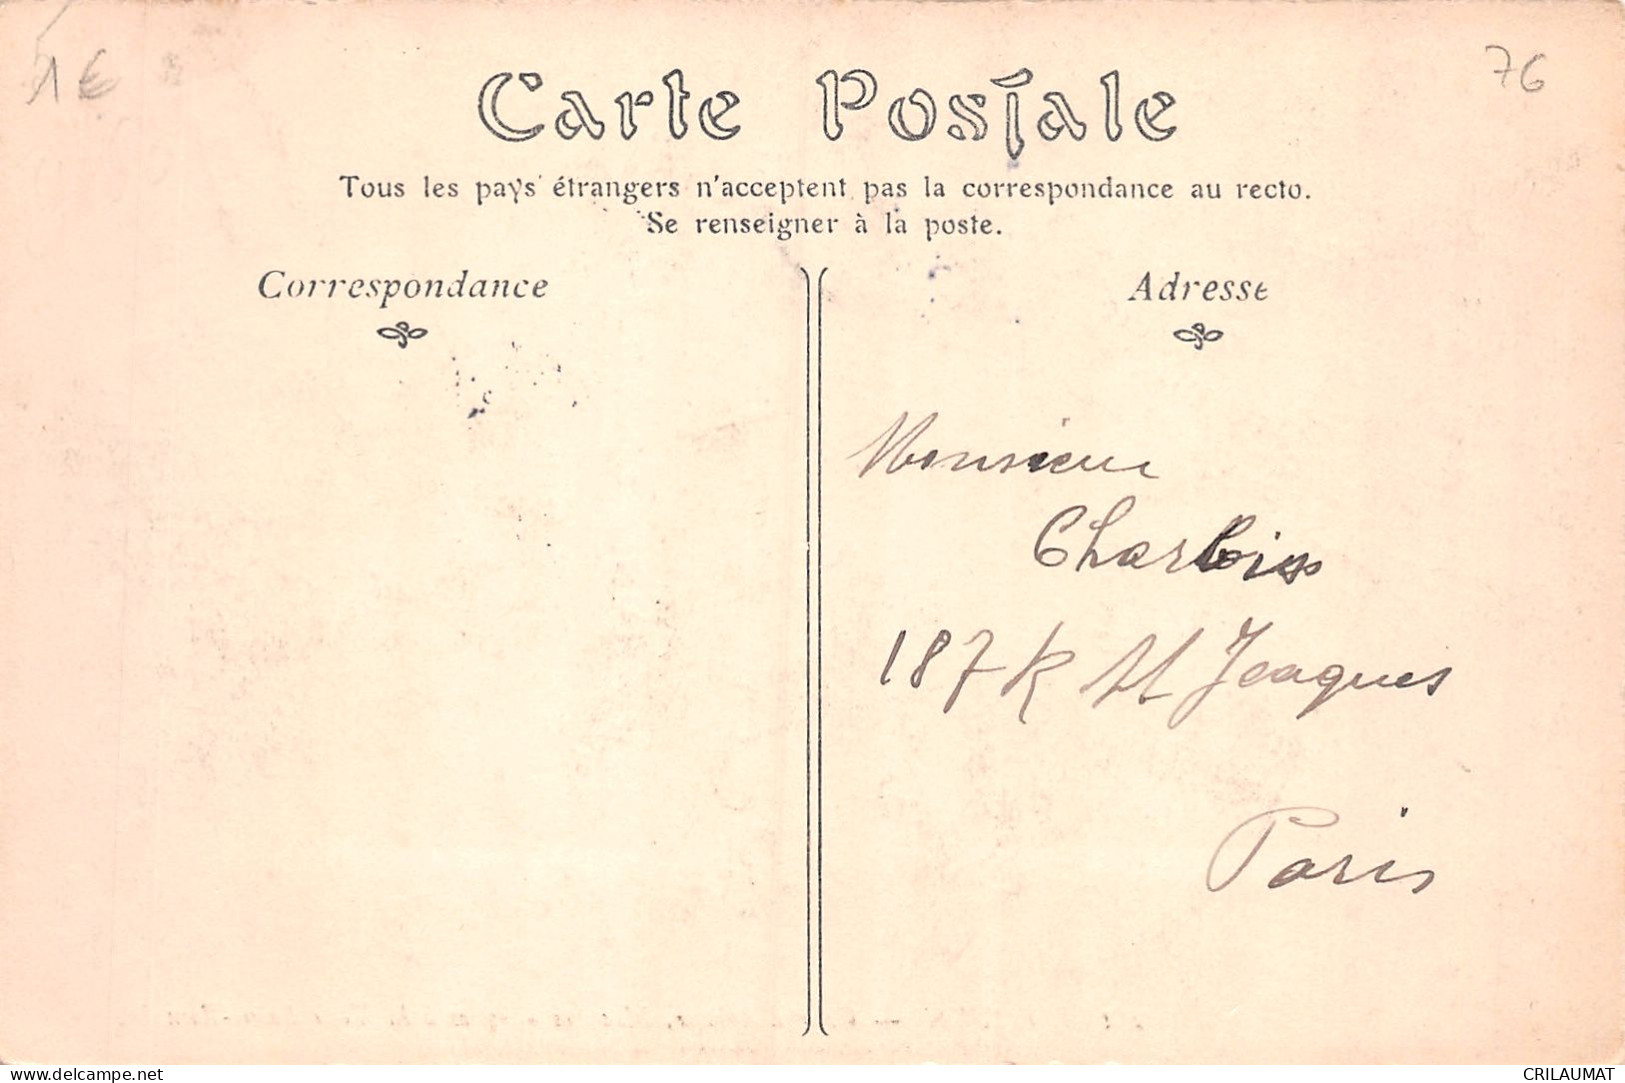 1€
76
Carte Postale
Tous les pays étrangers n'acceptent pas la correspondance au recto.
Se renseigner à la poste.
Correspondance
Adresse
Monsieur
187 R St Jeaques
Paris
www.delcampe.net
CRILAUMAT